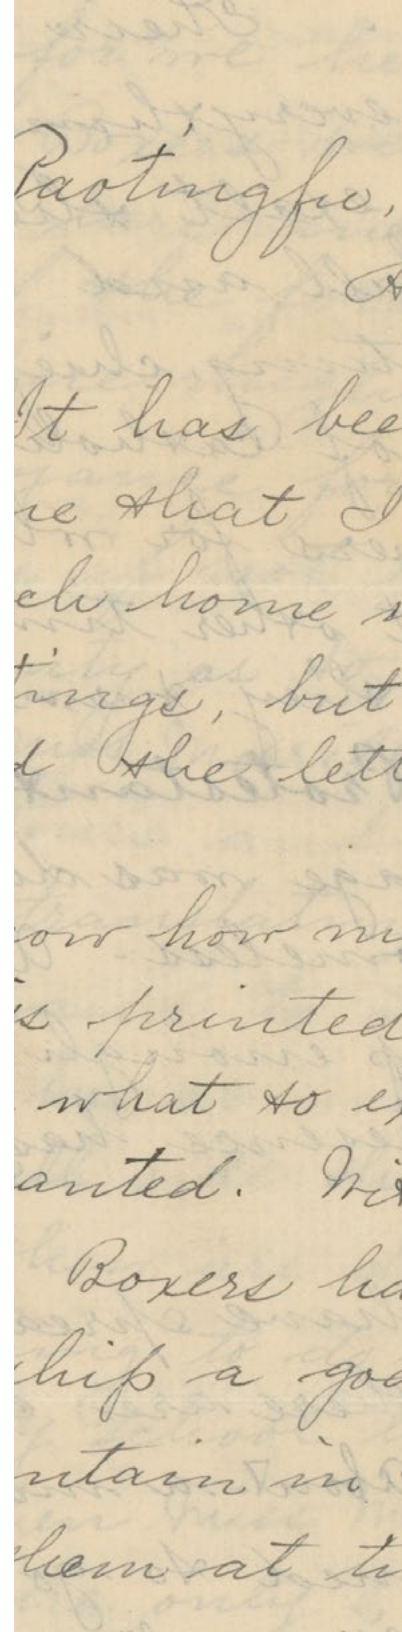 Paotingfu,
A
It has bee
re that I
ch home
tings, but
d the lett
ow how m
is printed
what to ex
anted. Wit
Boxers ha
ship a god
ntain in
them at ti